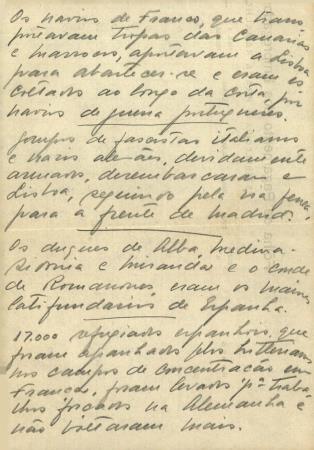 Os navios de Franco, que trans
portavam tropas das Canárias
e Marrocos, aportavam a Lisboa
para abastecer-se e eram es-
coltados ao longo da costa por
navios de guerra portugueses.
Grupos de fascistas italianos
e nazis alemães, devidamente
armados, desembarcaram em
Lisboa, seguindo pela via
para a frente de Madrid.
Os duques de Alba, Medina-
Sidonia e Miranda e o conde
de Romanones eram os maiores
latifundiários de Espanha.
17.000 refugiados espanhóis, que
foram apanhados pelos hitlerianos
nos campos de concentração em
França, foram levados pª traba
lhos forçados na Alemanha e
não voltaram mais.